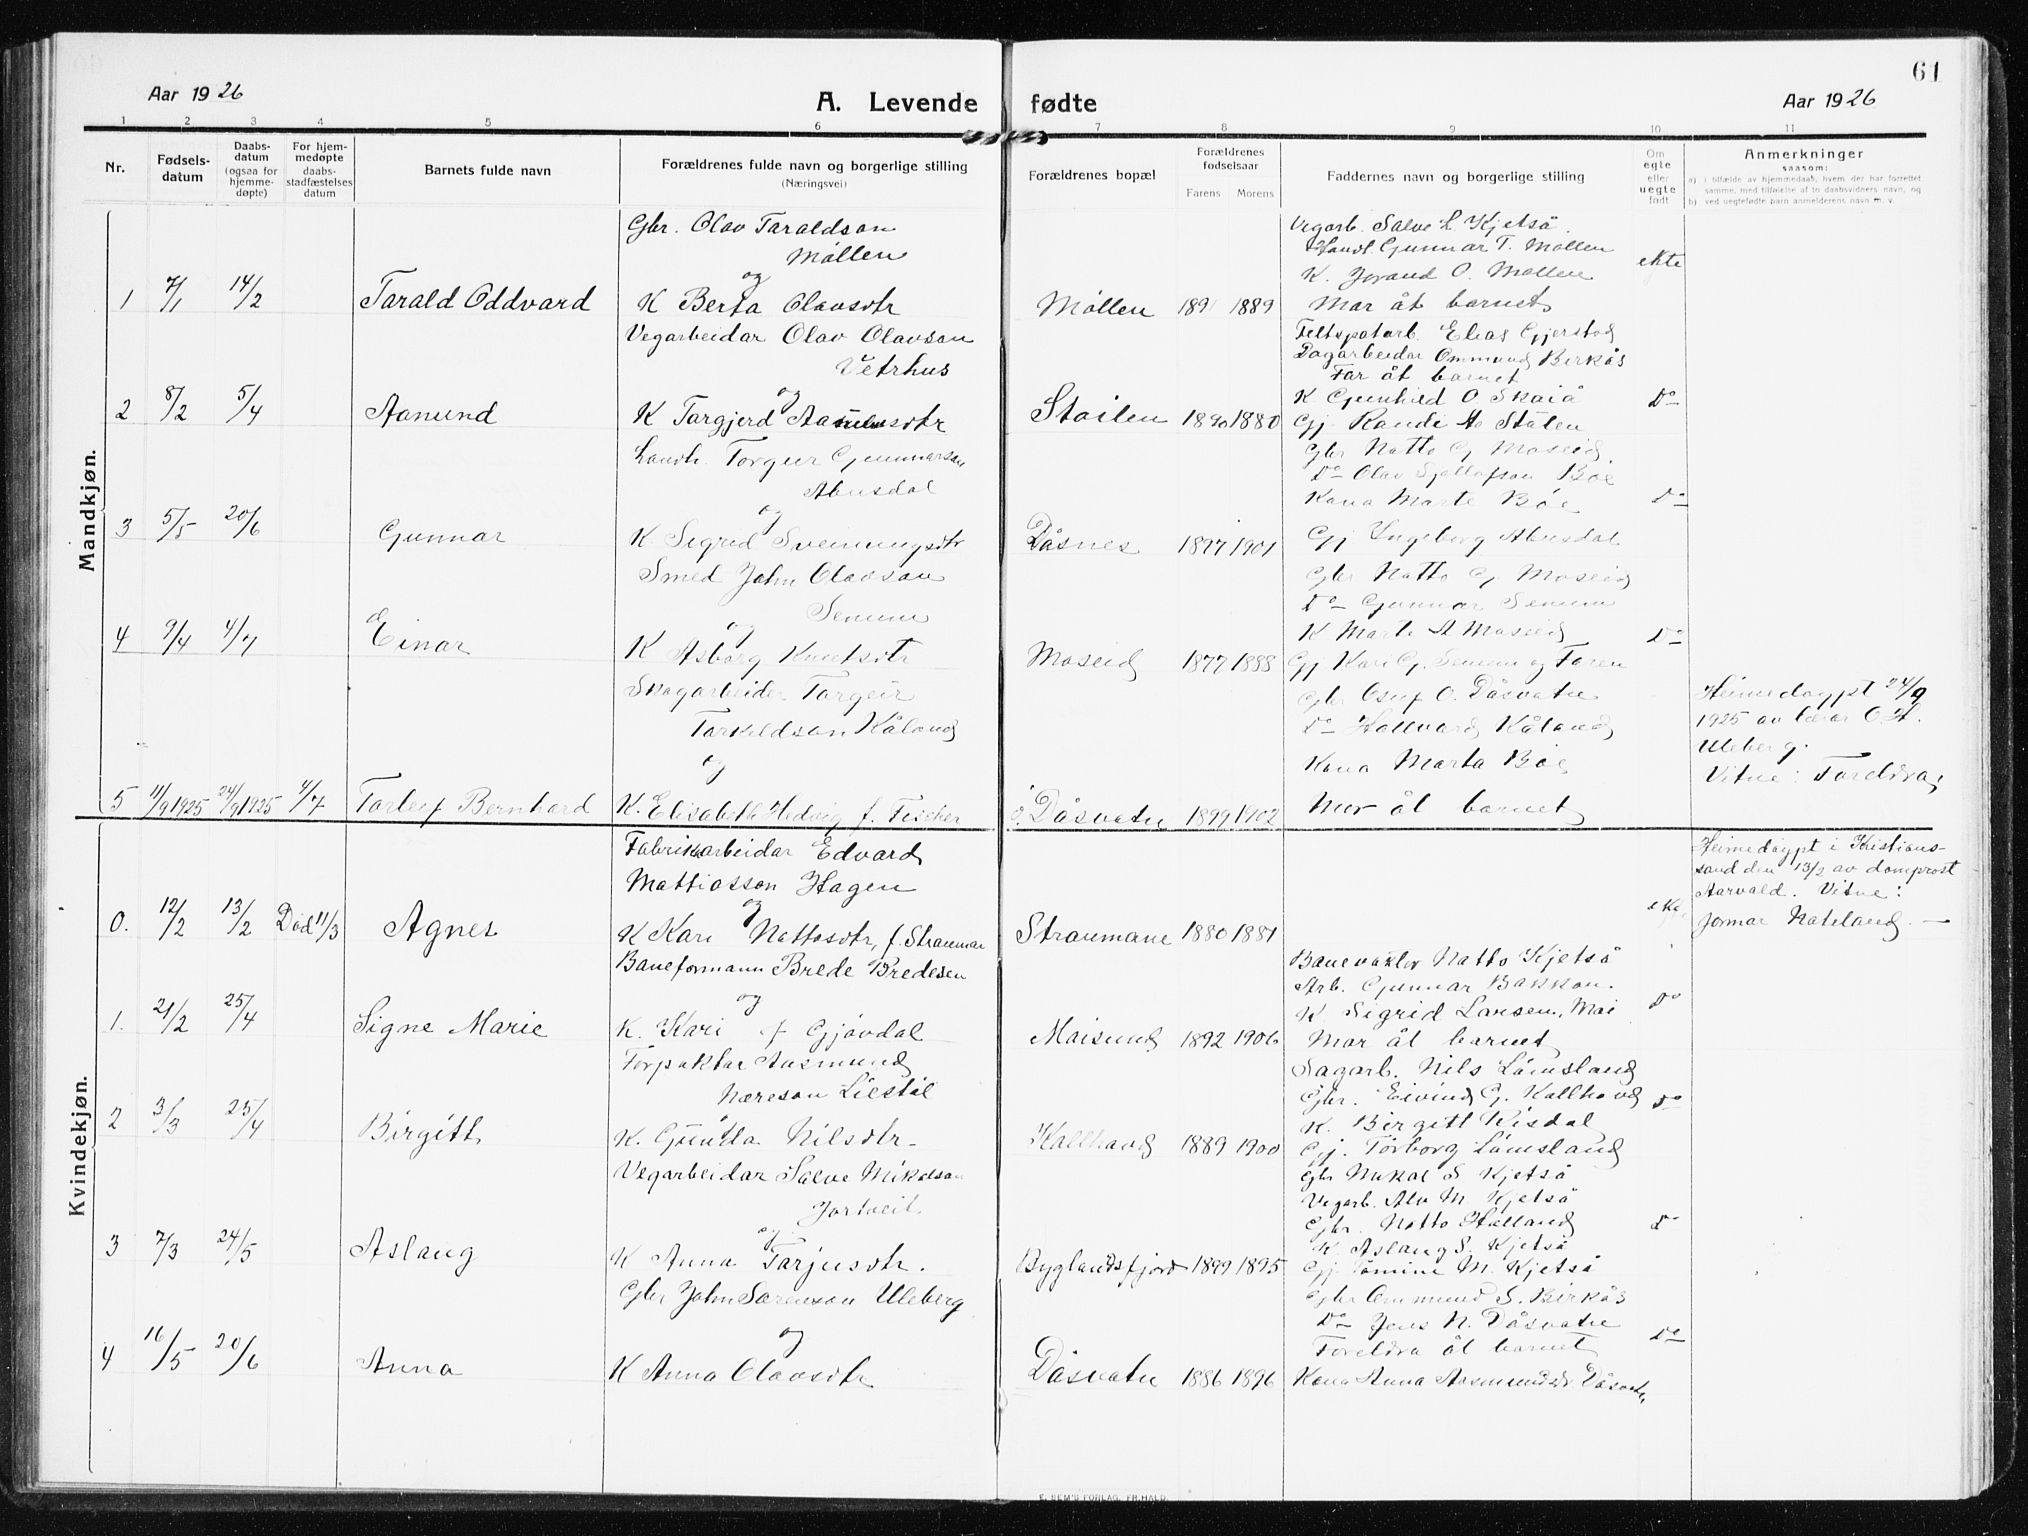 61
Aar 1926
A. Levende fødte
Aar 1926
1 2 3 4 5 6 7 8 9 10 11
Nr.
Fødsels-
datum
Daabs-
datum
(ogsaa for
hjemme-
døpte)
For hjem-
medøpte
daabs-
stadfæstelses
datum
Barnets fulde navn
Forældrenes fulde navn og borgerlige stilling
(Næringsvei)
Forældrenes bopæl
Forældrenes
fødselsaar
Farens Morens
Faddernes navn og borgerlige stilling
Om
egte
eller
uegte
født
Anmerkninger
saasom:
a) i tilfælde av hjemmedaab, hvem der har forrettet
samme, med tilføielse af to daabsvidners navn, og
b) ved uegtefødte barn anmelderens navn m. v.
Mandkjøn.
1 7/1 14/2 Tarald Oddvard
Gbr. Olav Taraldson
Møllen
og
K Berta Olavsdtr
Møllen 1891 1889
Vegarb. Salve L. Kjetså.
Handl. Gunnar T. Møllen
K. Jorand O. Møllen
Mor åt barnet
ekte
2 8/2 5/4 Aanund
Vegarbeidar Olav Olavson
Vetrhus
og
K Targjerd Aanundsdtr
Stoilen 1890 1880
Feltspatarb. Elias Gjerstad
Dagarbeidar Ommund Birkås
Far åt barnet
K Gunhild O Skaiå
Gj. Randi Stålen
Do
3 5/5 20/6 Gunnar
Landh. Torgur Gunnarson
Abusdal
og
K. Sigrid Sveinungsdtr
Dåsnes 1897 1901
Gbr Natto G Moseid.
Do Olav Sjellafson Bøe
Kona Marte Bøe
Gj Ingeborg Abusdal
Do
4 9/4 4/7 Einar
Smed John Olavson
Senum
og
K Asborg Knutsdtr
Moseid 1877 1888
Gbr Natto G Moseid
Do Gunnar Senum
K Marte A Moseid
Gj Kari G. Senum og Faren
Do
5 11/9 1925 24/9 1925 4/7 Torleif Bernhard
Skogarbeider Targeir
Tarkeldson Kåland
og
K. Elisabeth Hedvig f. Fischer
ö. Dåsvatn 1899 1902
Gbr Osuf O. Dåsvatn
Do Hallvard Kåland
Kona Marta Bøe
Mor åt barnet
Heimedøypt 24/9
1925 av lærar O. A.
Uleberg.
Vitne: Foreldra
Kvindekjøn.
0. 12/2 13/2 Død 11/3 Agnes
Fabrikarbeidar Edvard
Mattiasson Hagen
og
K Kari Nattosdtr, f. Straumar
Straumane 1880 1881
ekte
Heimedøypt i Kristians-
sand den 13/2 av domprost
Aarvald. Vitne:
Jormar Nateland.
1. 21/2 25/4 Signe Marie
Baneformann Brede Bredesen
og
K. Kari f Gjøvdal
Moisund 1892 1906
Banevakter Natto Kjetså
Arb. Gunnar Bakkon.
K Sigrid Larsen, Moi
Mor åt barnet
Do
2 3/3 25/4 Birgitt
Forpaktar Aasmund
Næreson Liestøl
K. Gunda Nilsdtr
Kallhovd 1889 1900
Sagarb. Nils Lømsland
Gbr. Eivind G. Kallhovd
K. Birgitt Risdal
Gj. Torborg Lømsland
Do
3 7/3 24/5 Aslaug
Vegarbeidar Salve Mikalson
Jortveit
og
K Anna Tarjusdtr.
Byglandsfjord 1899 1895
Gbr Mikal S Kjetså
Vegarb. Alv M. Kjetså
Gbr. Natto Halland
K. Aslaug S. Kjetså
Gj. Tomine M. Kjetså
Do
4 16/5 20/6 Anna
Gbr John Sørenson Uleberg
og
K Anna Olavsdtr
Dåsvatn 1886 1896
Gbr Ommund S. Birkås
Do Jens N. Dåsvatn
Foreldra åt barnet
Kona Anna Aasmundsdtr Dåsvatn
Do
E. SEM'S FORLAG, FR.HALD.